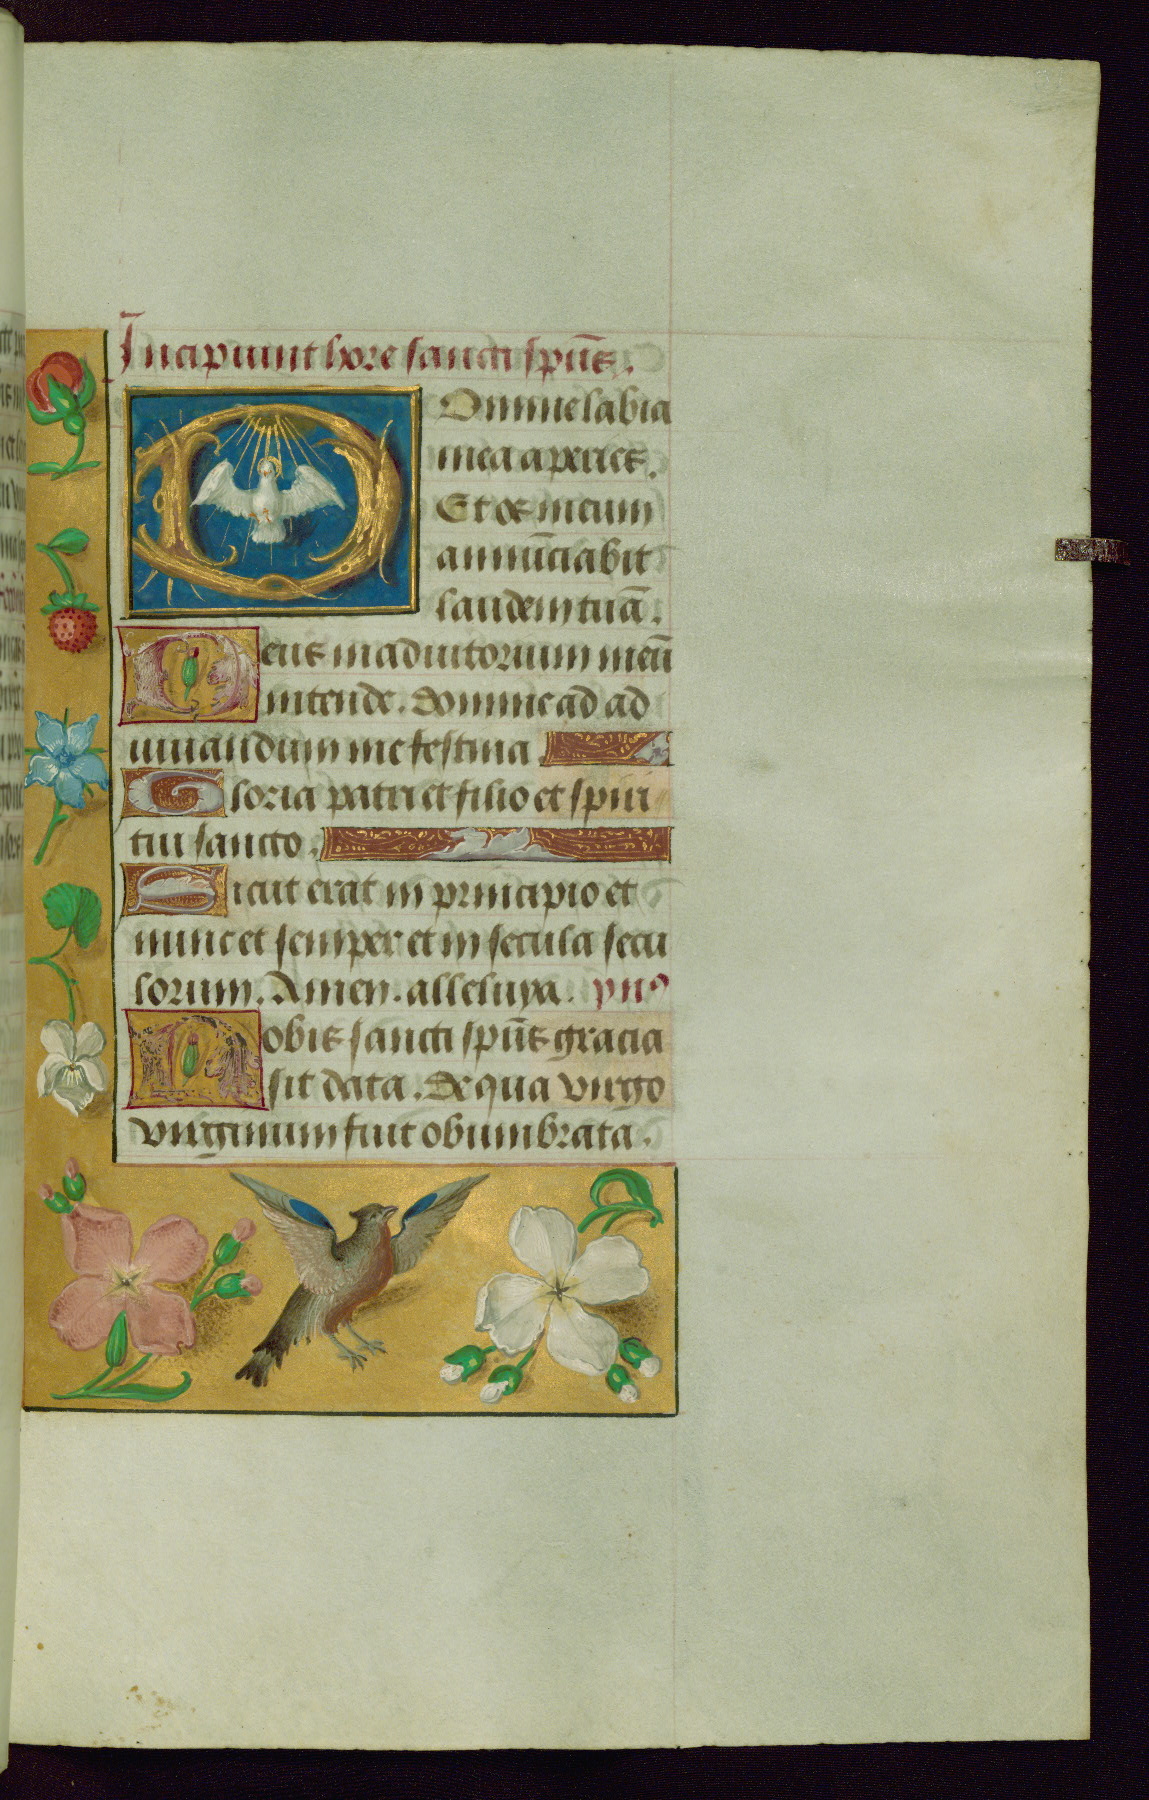 Incipiunt hore sancti spūs.
Domine labia
mea aperies.
Et os meum
annūciabit
laudem tuā.
Deus in adiutorium meū
intende. Domine ad ad
iuuandum me festina
Gloria patri et filio et spiri
tui sancto.
Sicut erat in principio et
nunc et semper et in secula secu
lorum. Amen. alleluya. ymꝰ
Nobis sancti spūs gracia
sit data. De qua virgo
virginum fuit obumbrata.